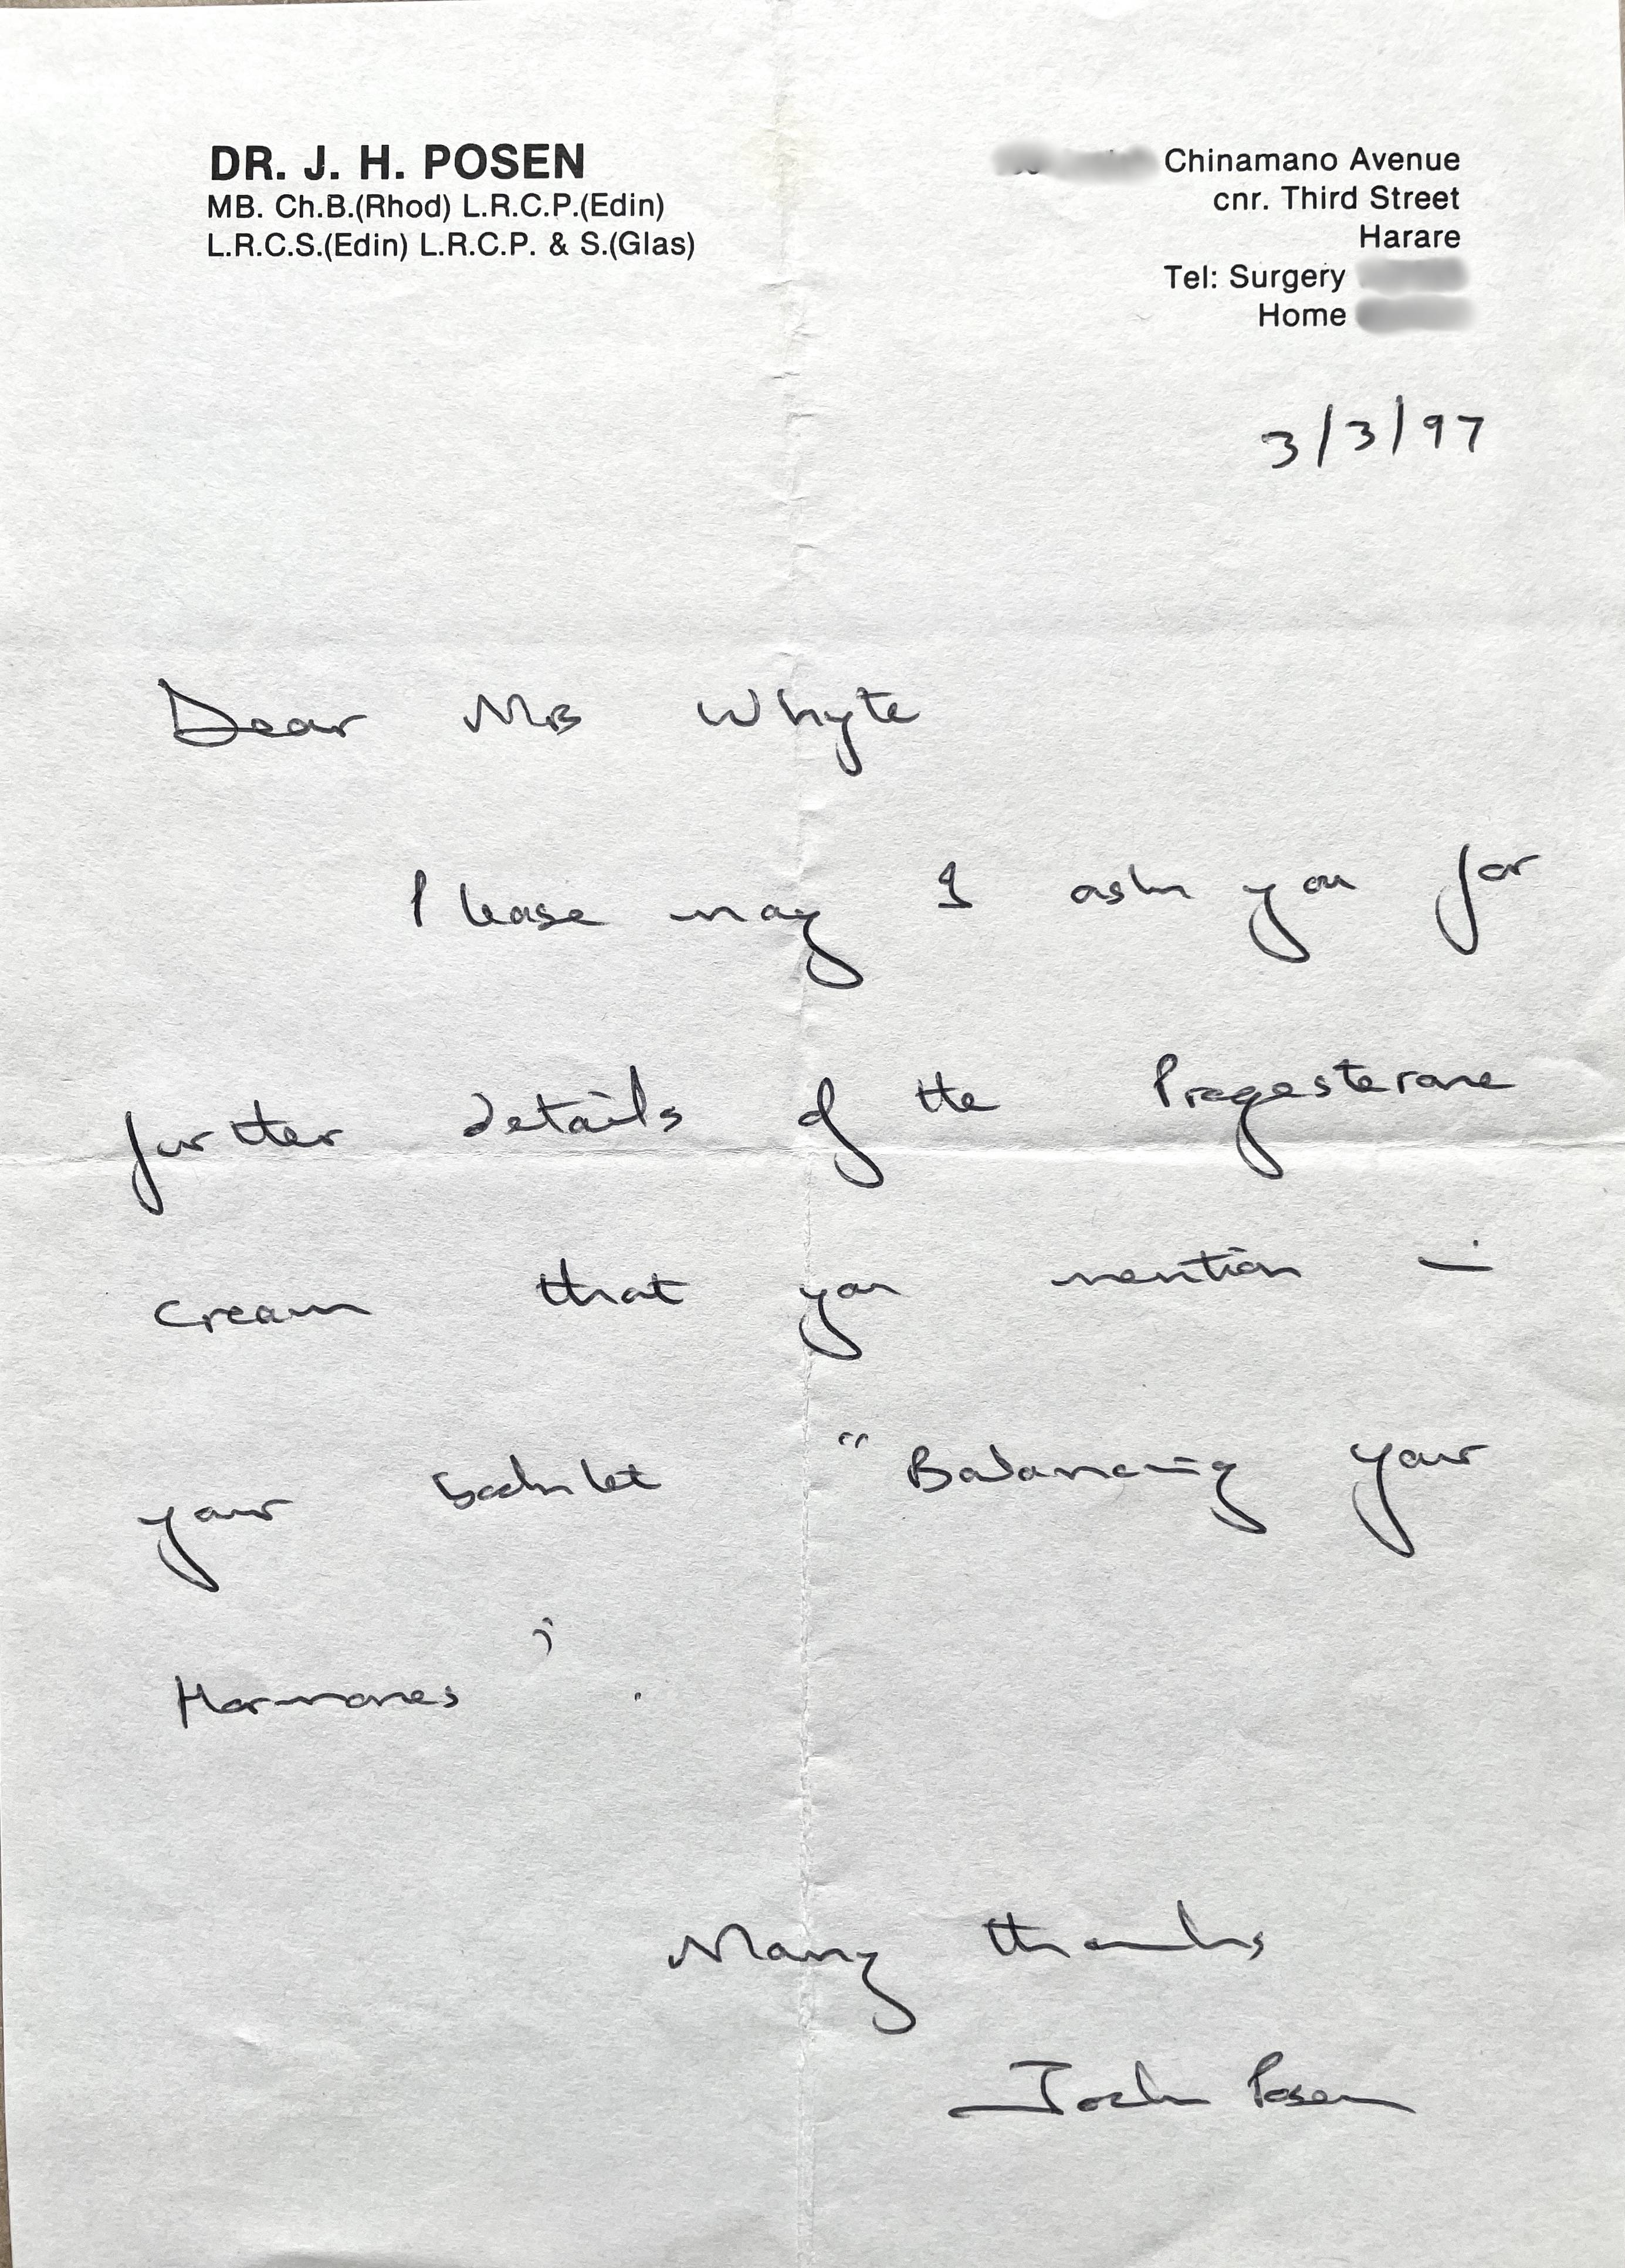 DR. J. H. POSEN
MB. Ch.B.(Rhod) L.R.C.P.(Edin)
L.R.C.S.(Edin) L.R.C.P. & S.(Glas)
Chinamano Avenue
cnr. Third Street
Harare
Tel: Surgery
Home
3/3/97
Dear Mrs Whyte
Please may I ask you for
further details of the Progesterone
cream that you mention in
your booklet "Balancing your
Hormones".
Many thanks
Jack Posen